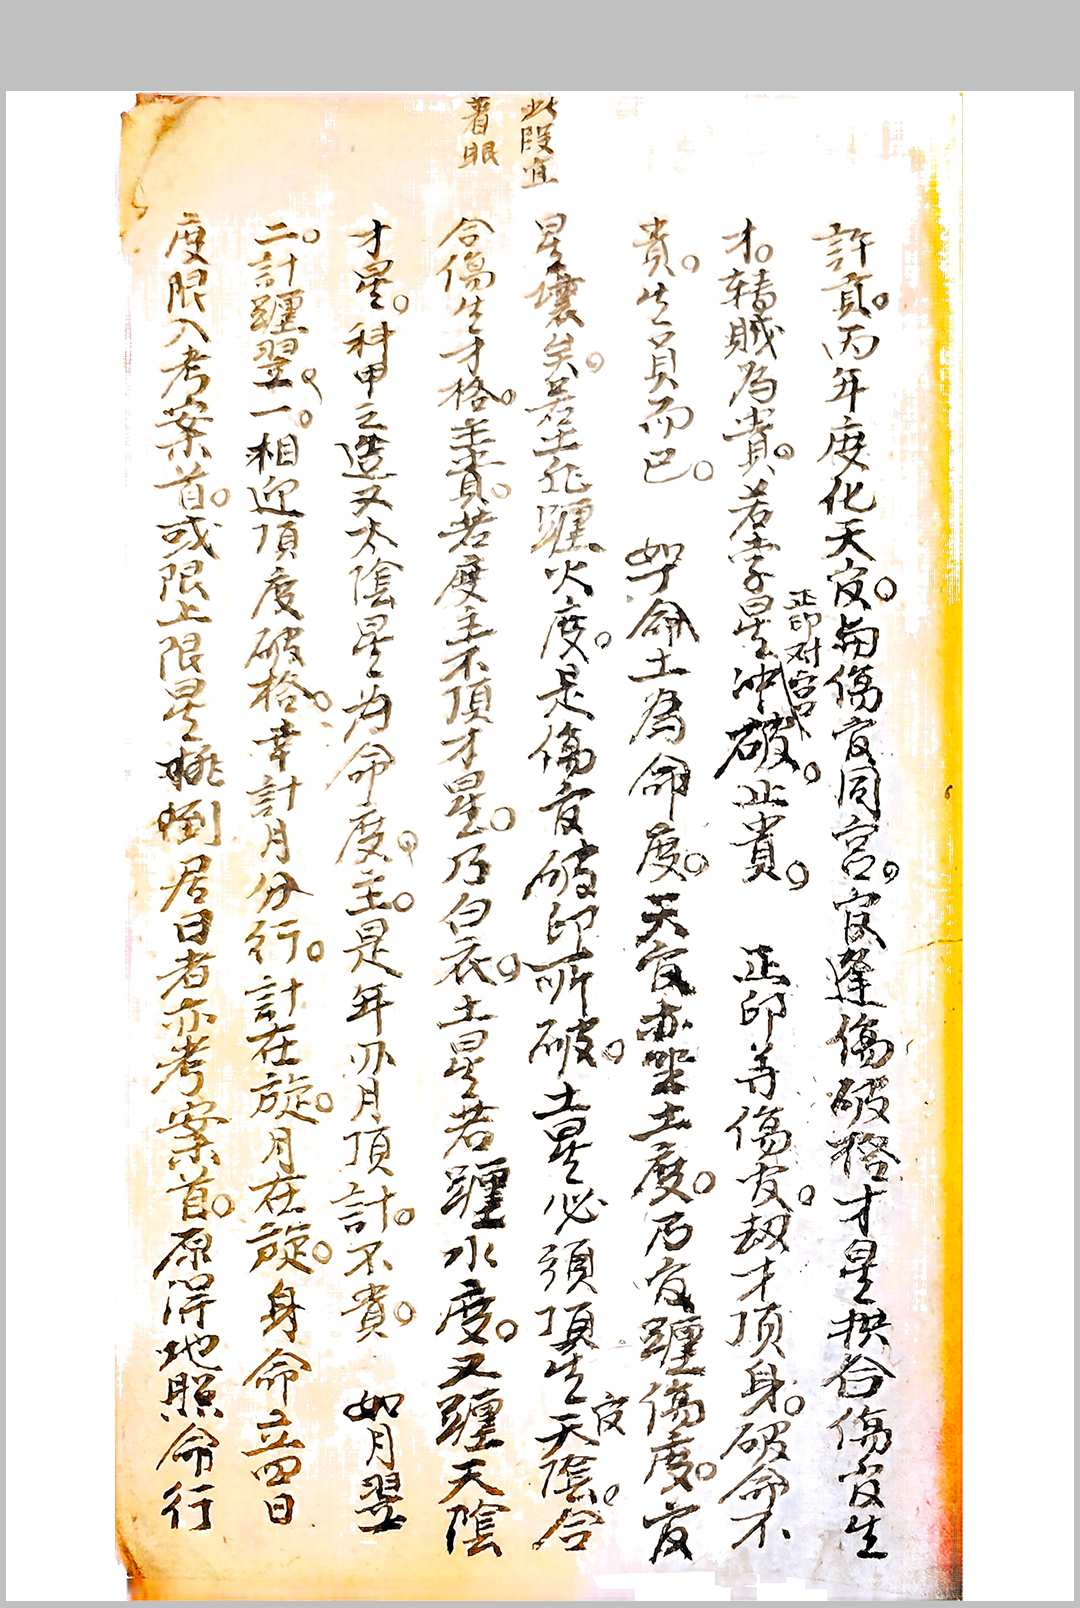 此段宜
着眼
許貢。丙年度化天官。与傷官同宮。官逢傷破格才星拱合傷官生
才。轉賊為貴。若孛星冲破。止貴。正印并傷官。刼才頂身。破命不
正印对宫
貴。生員而已。如子命土為命度。天官亦坐土度。乃官躔傷度。官
星壞矣。若土非躔火度。是傷官破印所破。土星必須頂生天陰合
官
合傷生才格。主貴。若度主不頂才星。乃白衣。土星若躔水度。又躔天陰
才星。科甲之造又太陰星為命度。主。是年刅月頂計。不貴。如月翌
二。計躔翌。一。相迎頂度破格。幸計月分行。計在旋。月在旋。身命立四日
度限入考案首。或限上限星挑倒居日者亦考案首。原得地照命行